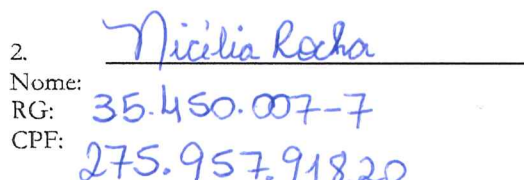 2. Nicélia Rocha
Nome:
RG: 35.450.007-7
CPF: 275.957.91820